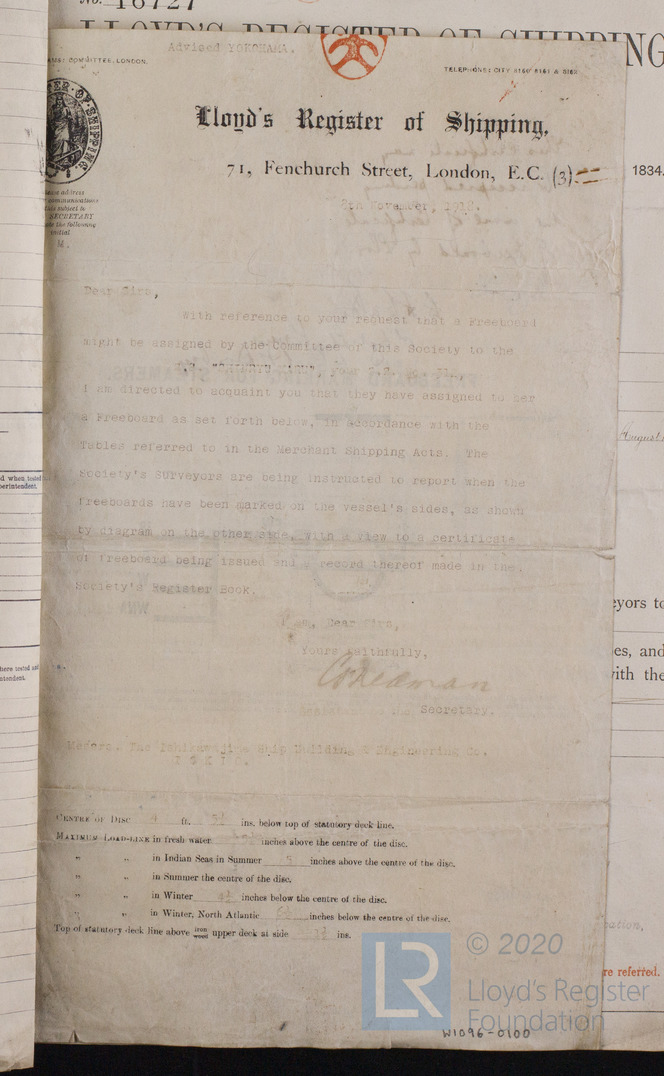 No. 16727
LLOYD'S REGISTER OF SHIPPING
Advised YOKOHAMA.
COMMITTEE, LONDON.
TELEPHONE: CITY 8160 8161 & 8162
Lloyd's Register of Shipping,
71, Fenchurch Street, London, E.C. (3)
1834.
8th November, 1918.
SECRETARY
the following
initial
M.
Dear Sirs,
With reference to your request that a Freeboard
might be assigned by the Committee of this Society to the
I am directed to acquaint you that they have assigned to her
a Freeboard as set forth below, in accordance with the
Tables referred to in the Merchant Shipping Acts. The
Society's Surveyors are being instructed to report when the
freeboards have been marked on the vessel's sides, as shown
by diagram on the other side, with a view to a certificate
of freeboard being issued and a record thereof made in the
Society's Register Book.
I am, Dear Sirs,
Yours faithfully,
Secretary.
Messrs. The Ishikawajima Ship Building & Engineering Co.
TOKIO.
CENTRE OF DISC 4 ft. ins. below top of statutory deck line.
MAXIMUM LOAD-LINE in fresh water inches above the centre of the disc.
" " in Indian Seas in Summer 5 inches above the centre of the disc.
" " in Summer the centre of the disc.
" " in Winter inches below the centre of the disc.
" " in Winter, North Atlantic inches below the centre of the disc.
Top of statutory deck line above iron wood upper deck at side ins.
August
eyors to
es, and
with the
re referred.
LR
© 2020
Lloyd's Register
Foundation
W1096-0100